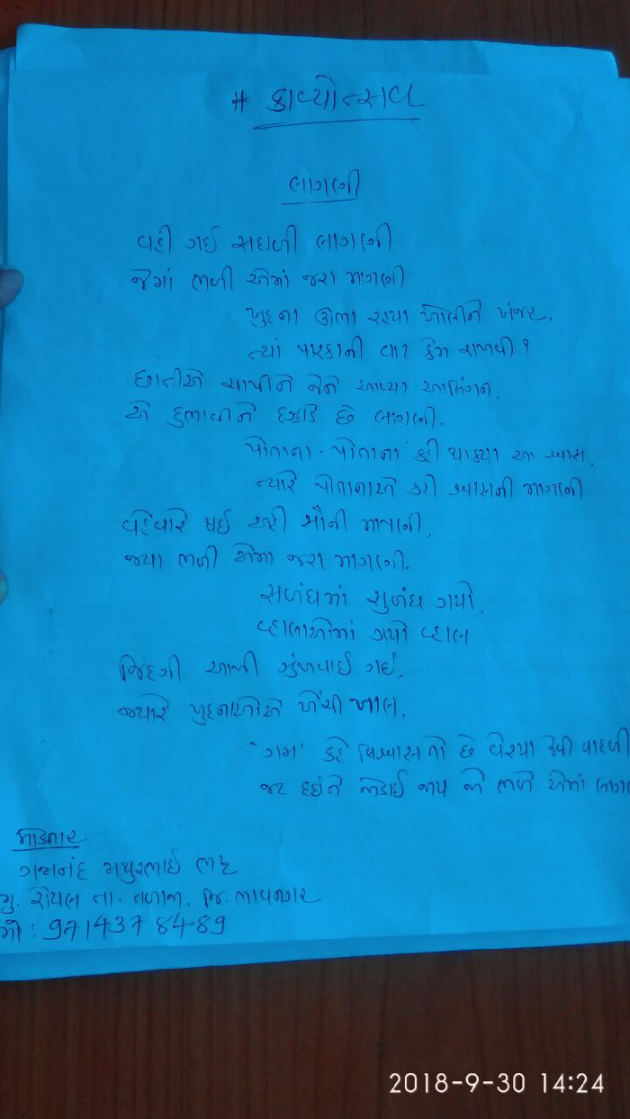 # કાવ્યોત્સવ
લાગણી
વહી ગઈ સઘળી લાગણી
જેમાં ભળી એમાં જરા માગણી
ખુદના ઊભા રહ્યા ખોલીને ખંજર,
ત્યાં પારકાની વાટ કેમ રાખવી?
છાતીએ ચાપીને જેને આપ્યા આલિંગન,
એ હુલાવીને દઝાડે છે લાગણી.
પોતાના-પોતાના કહી થાક્યા આ શ્વાસ,
ત્યારે પોતાનાએ કરી શ્વાસની માગણી
વહેવારે થઈ અહી સૌની માપણી,
જ્યા ભળી એમા જરા માગણી.
સબંધમાં સુબંધ ગયો,
વ્હાલાઓમાં ગયો વ્હાલ
જિંદગી આખી ગુંગળાઈ ગઈ,
જ્યારે ખુદનાઓએ ખેંચી ખાલ.
"ગજ" કહે વિશ્વાસ તો છે વેશ્યા જેવી વાદળી
જટ દઈને જોડાઈ જાય જો ભળે એમાં
મોકલનાર
ગજાનંદ મથુરભાઈ ભટ્ટ
મુ. રોયલ તા. તળાજા, જિ. ભાવનગર
મો: 9714378489
2018-9-30 14:24